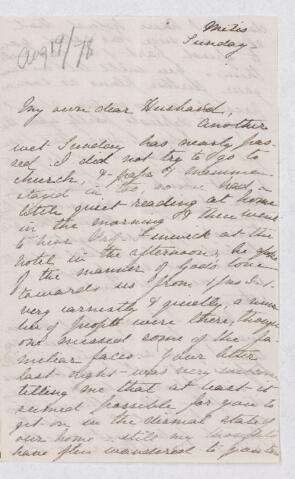 Metis
Sunday
Aug 19/78
My own dear Husband,
Another
wet Sunday has nearly pas-
sed. I did not try to go to
church, & papa & Mamma
stayed in too, so we had a
little quiet reading at home
in the morning & then went
to hear Mr Fenwick at the
hotel in the afternoon, he spoke
of the manner of Gods love
towards us from 1 Jno 3.1.
very earnestly & quietly, a num-
ber of people were there, though
one missed some of the fa-
miliar faces. Your letter
last night was very welcome
telling me that at least it
seemed possible for you to
get on in the dismal state of
our home. still my thoughts
have often wandered to you